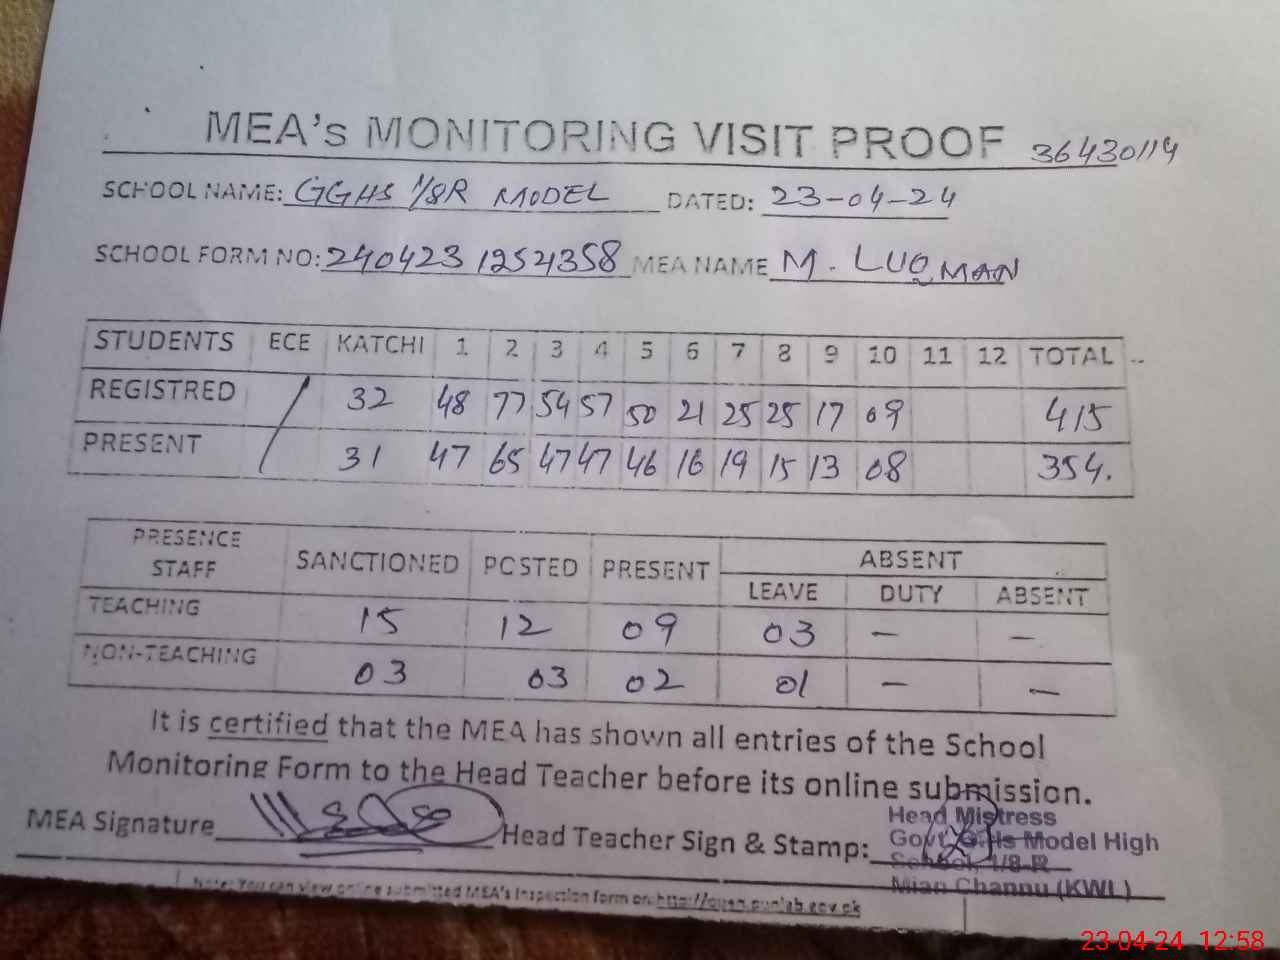 MEA's MONITORING VISIT PROOF 36430114
SCHOOL NAME: GGHS 1/8R MODEL DATED: 23-04-24
SCHOOL FORM NO: 240423 1254358 MEA NAME M. LUQMAN
STUDENTS ECE KATCHI 1 2 3 4 5 6 7 8 9 10 11 12 TOTAL
REGISTRED / 32 48 77 54 57 50 21 25 25 17 09 415
PRESENT 31 47 65 47 47 46 16 19 15 13 08 354.
PRESENCE STAFF SANCTIONED POSTED PRESENT ABSENT
LEAVE DUTY ABSENT
TEACHING 15 12 09 03 — —
NON-TEACHING 03 03 02 01 — —
It is certified that the MEA has shown all entries of the School
Monitoring Form to the Head Teacher before its online submission.
MEA Signature Head Teacher Sign & Stamp:
Head Mistress
Govt. Girls Model High
School, 1/8-R
Mian Channu (KWL)
Note: You can view online submitted MEA's Inspection form on http://open.punjab.gov.pk
23-04-24 12:58